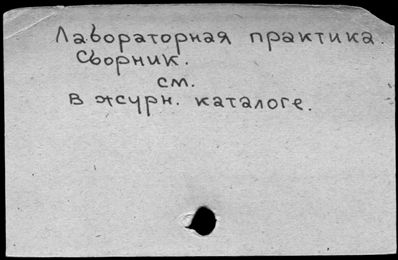 Лабораторная практика.
Сборник.
см.
в журн. каталоге.